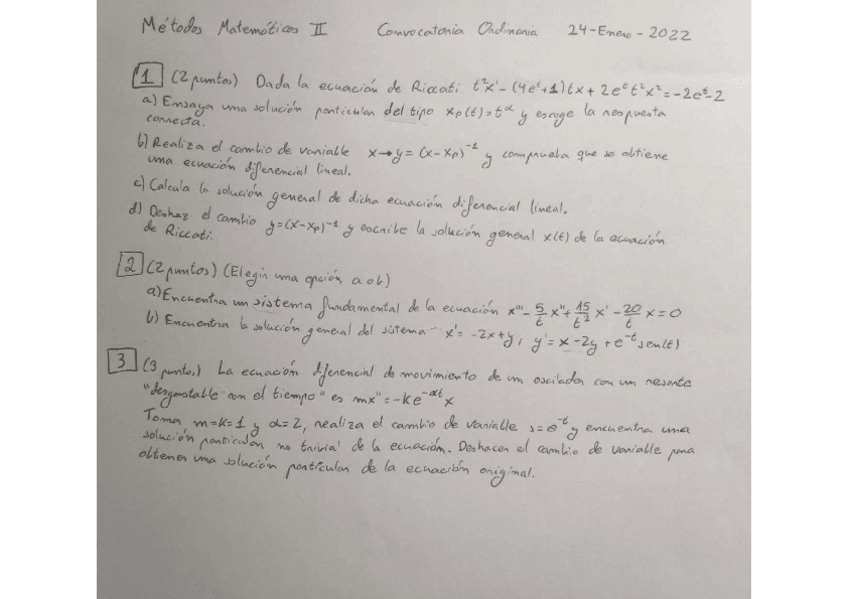 Métodos Matemáticos II Convocatoria Ordinaria 24-Enero-2022
1 (2 puntos) Dada la ecuación de Riccati t²x' - (4eᵗ+1)tx + 2eᵗt²x² = -2eᵗ-2
a) Ensaya una solución particular del tipo xₚ(t)=t^α y escoge la respuesta
correcta.
b) Realiza el cambio de variable x→y=(x-xₚ)⁻¹ y comprueba que se obtiene
una ecuación diferencial lineal.
c) Calcula la solución general de dicha ecuación diferencial lineal.
d) Deshaz el cambio y=(x-xₚ)⁻¹ y escribe la solución general x(t) de la ecuación
de Riccati.
2 (2 puntos) (Elegir una opción a o b)
a) Encuentra un sistema fundamental de la ecuación x''' - 5/t x'' + 15/t² x' - 20/t x = 0
b) Encuentra la solución general del sistema x' = -2x+y, y' = x-2y+e⁻ᵗsen(t)
3 (3 puntos) La ecuación diferencial de movimiento de un oscilador con un resorte
"desgastable con el tiempo" es mx'' = -ke^-αt x
Toma m=k=1 y α=2, realiza el cambio de variable s=e⁻ᵗ y encuentra una
solución particular no trivial de la ecuación. Deshacer el cambio de variable para
obtener una solución particular de la ecuación original.